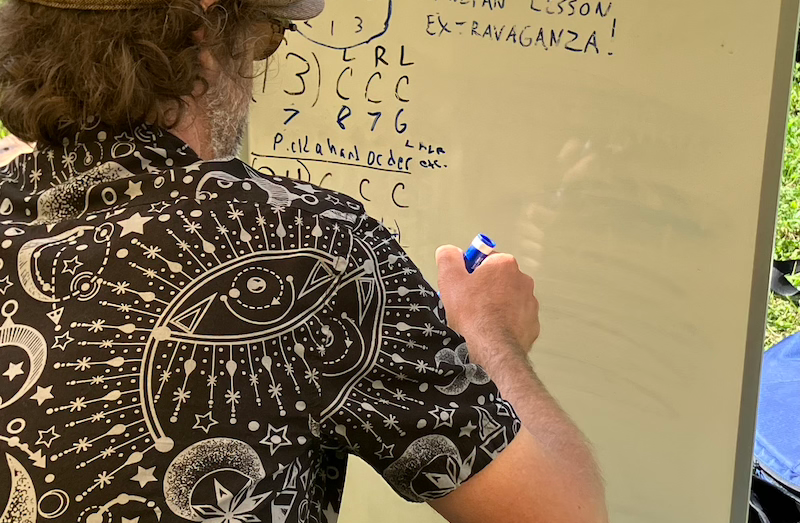 LISSON
EXTRAVAGANZA!
1 3
L R L
13) C C C
7 8 7 6
Pick a hand order LRLR
exc.
C C C